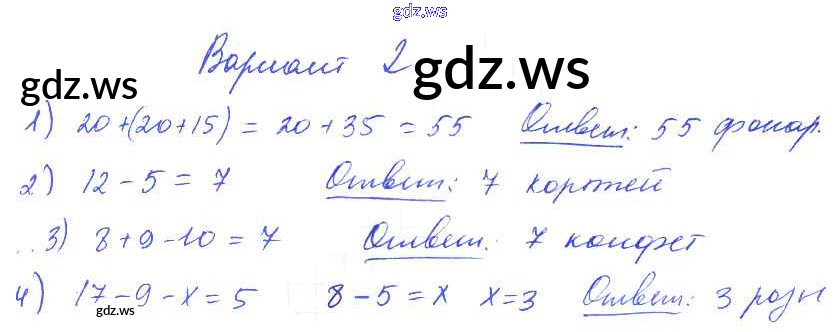 gdz.ws
Вариант 2
gdz.ws
gdz.ws
1) 20+(20+15) = 20+35 = 55 Ответ: 55 фонар.
2) 12-5 = 7 Ответ: 7 коржей
3) 8+9-10 = 7 Ответ: 7 конфет
4) 17-9-x=5 8-5=x x=3 Ответ: 3 розы
gdz.ws